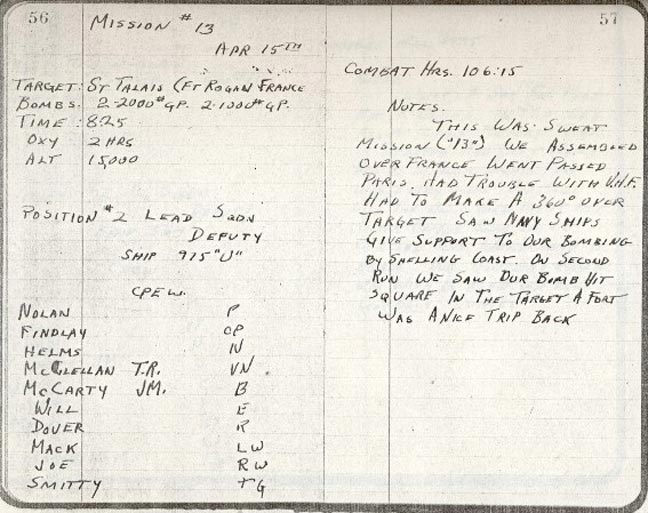 56
MISSION #13
APR 15TH
TARGET: ST TALAIS (FT ROGAN FRANCE
BOMBS: 2-2000# GP. 2-1000# GP.
TIME : 8:25
OXY 2 HRS
ALT 15,000
POSITION #2 LEAD SQDN
DEPUTY
SHIP 975 "U"
CREW.
NOLAN P
FINDLAY CP
HELMS N
McCLELLAN T.R. VN
McCARTY JM. B
WILL E
DOVER R
MACK LW
JOE RW
SMITTY TG
57
COMBAT HRS. 106:15
NOTES.
THIS WAS SWEAT
MISSION ("13") WE ASSEMBLED
OVER FRANCE WENT PASSED
PARIS. HAD TROUBLE WITH V.H.F.
HAD TO MAKE A 360° OVER
TARGET SAW NAVY SHIPS
GIVE SUPPORT TO OUR BOMBING
BY SHELLING COAST. ON SECOND
RUN WE SAW OUR BOMB HIT
SQUARE IN THE TARGET A FORT
WAS A NICE TRIP BACK